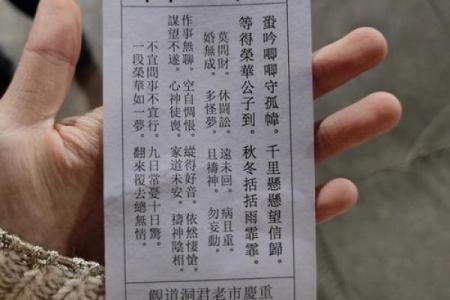 蛩吟唧唧守孤幃。千里懸懸望信歸。
等得榮華公子到。秋冬括括雨霏霏。
莫問財。休鬪訟。遠未回。病且重。
婚無成。多怪夢。且禱神。勿妄動。
作事無聊。空自惆悵。縱得好音。依然悽愴。
謀望不遂。心神徒喪。家道未安。禱神陰相。
不宜問事不宜行。九日常憂十日驚。
一段榮華如一夢。翻來覆去總無情。
重慶市老君洞道觀